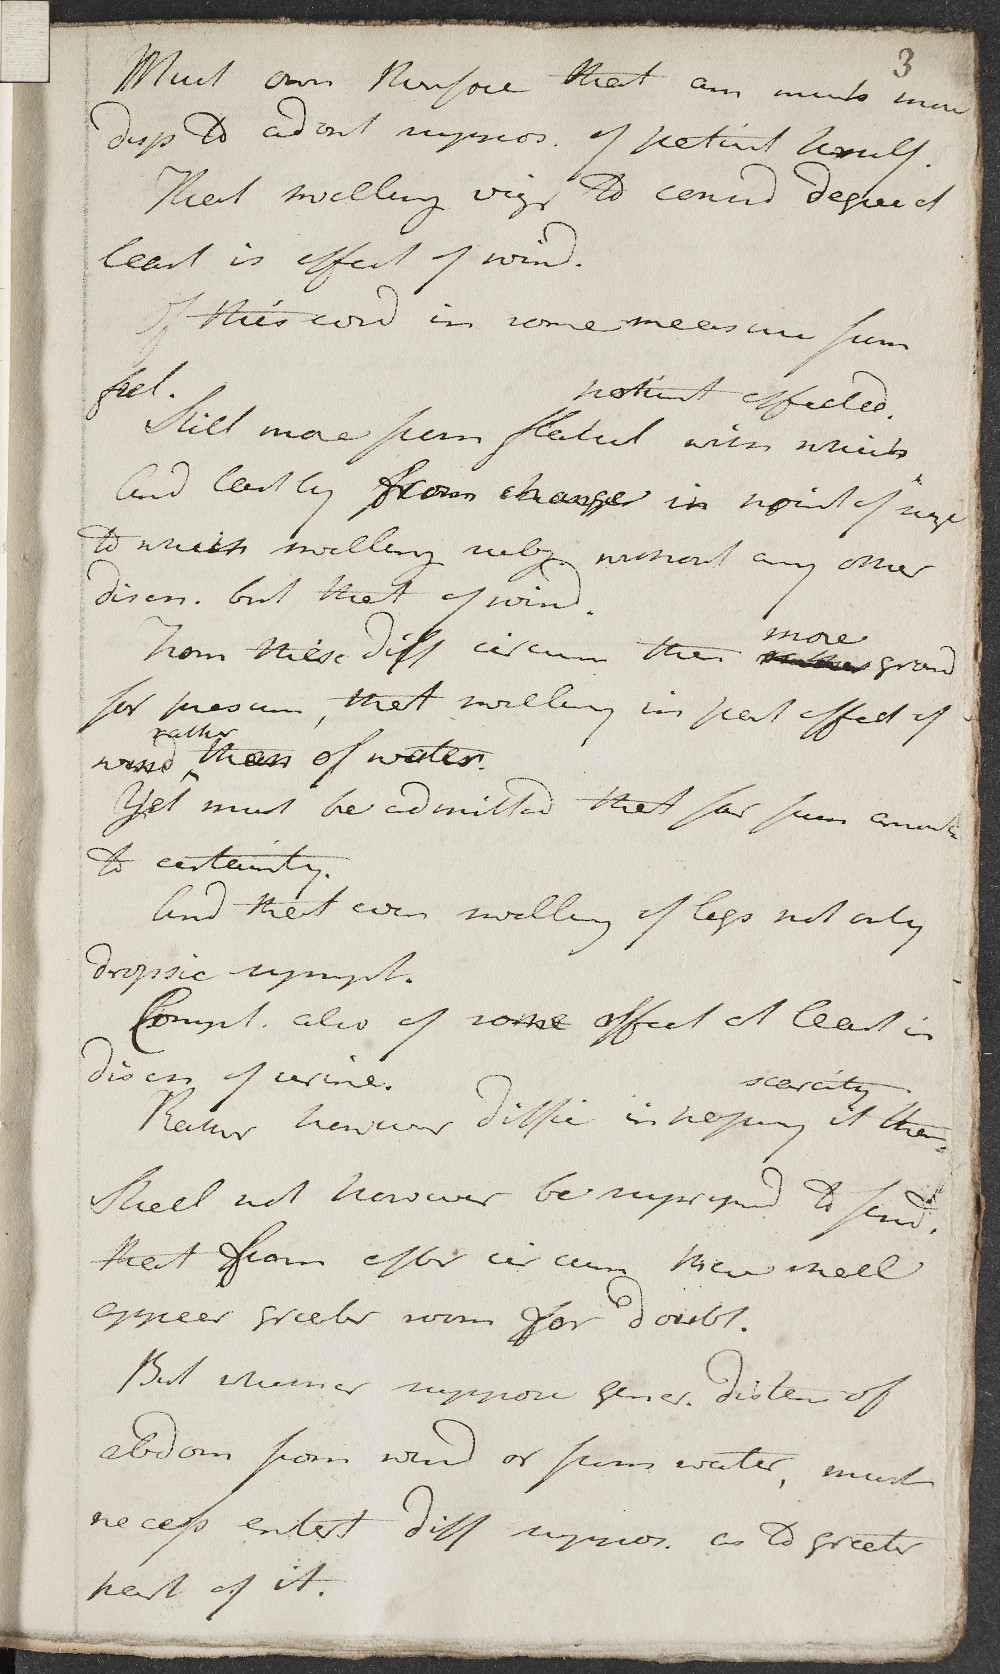 3
Must own therefore that am much more
disp to adopt suppos. of patient herself.
That swelling to cerned degree at
least is effect of wind.
Of this cord in some measure from
feel.
patient affected.
Still more from flatul with which
And lastly from change in point of size
to which swelling subj. without any other
discn. but that of wind.
From these diff circum then more ground
for presum, that swelling in part effect of
rather
wind than of water.
Yet must be admitted that far from amounts
to certainty.
And that even swelling of legs not only
dropsic sympt.
Compl. also of some effect at least in
discn of urine.
scarcity
Rather however diffic in it than
Shall not however be surprized to find.
that from after circum there shall
appear greater room for doubt.
But whether suppose gener. disten of
abdom from wind or from water, must
necess entert diff suppos. as to greater
part of it.